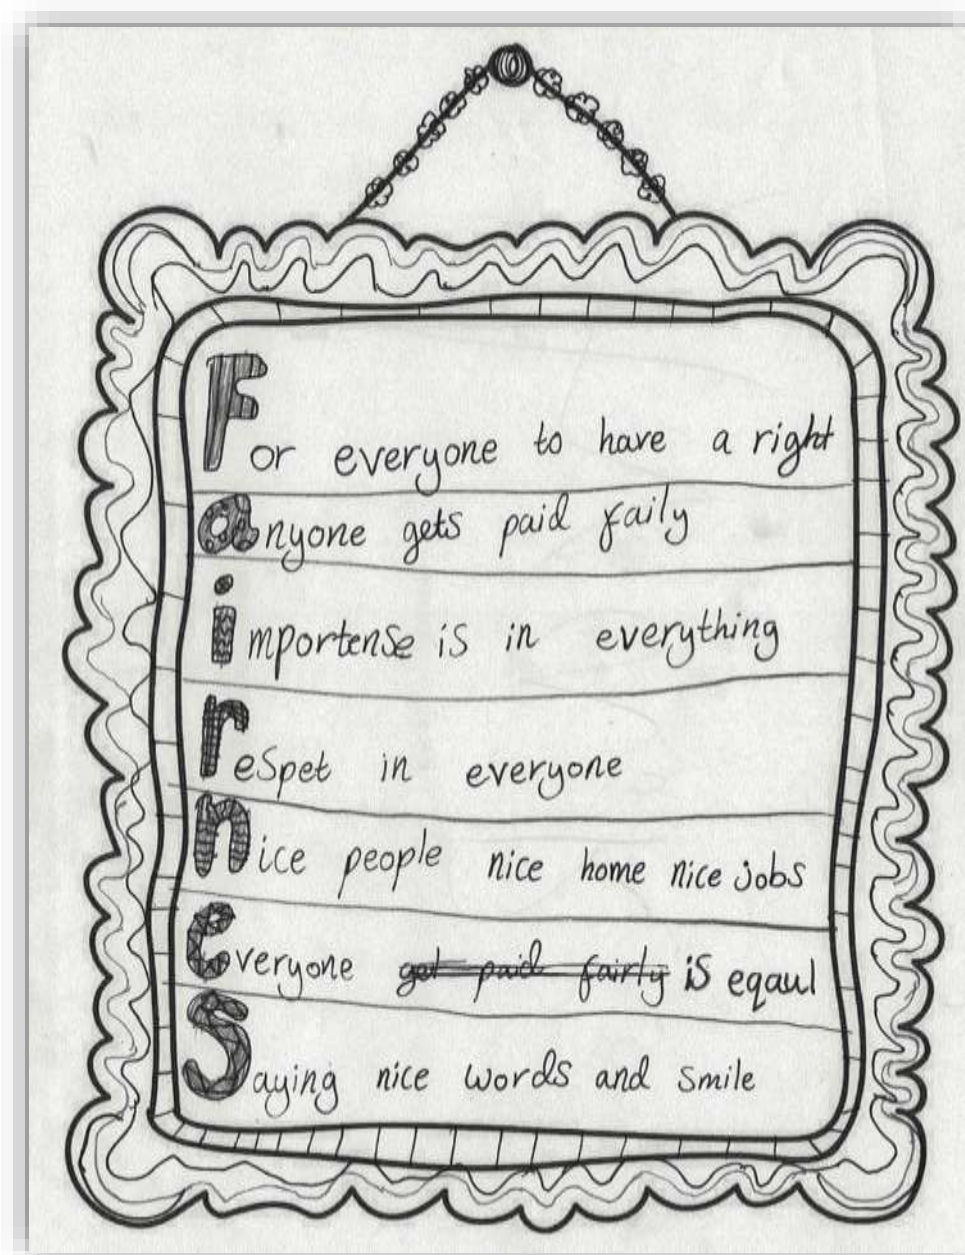 For everyone to have a right
anyone gets paid faily
importense is in everything
respet in everyone
nice people nice home nice jobs
everyone get paid fairly is eqaul
Saying nice words and smile